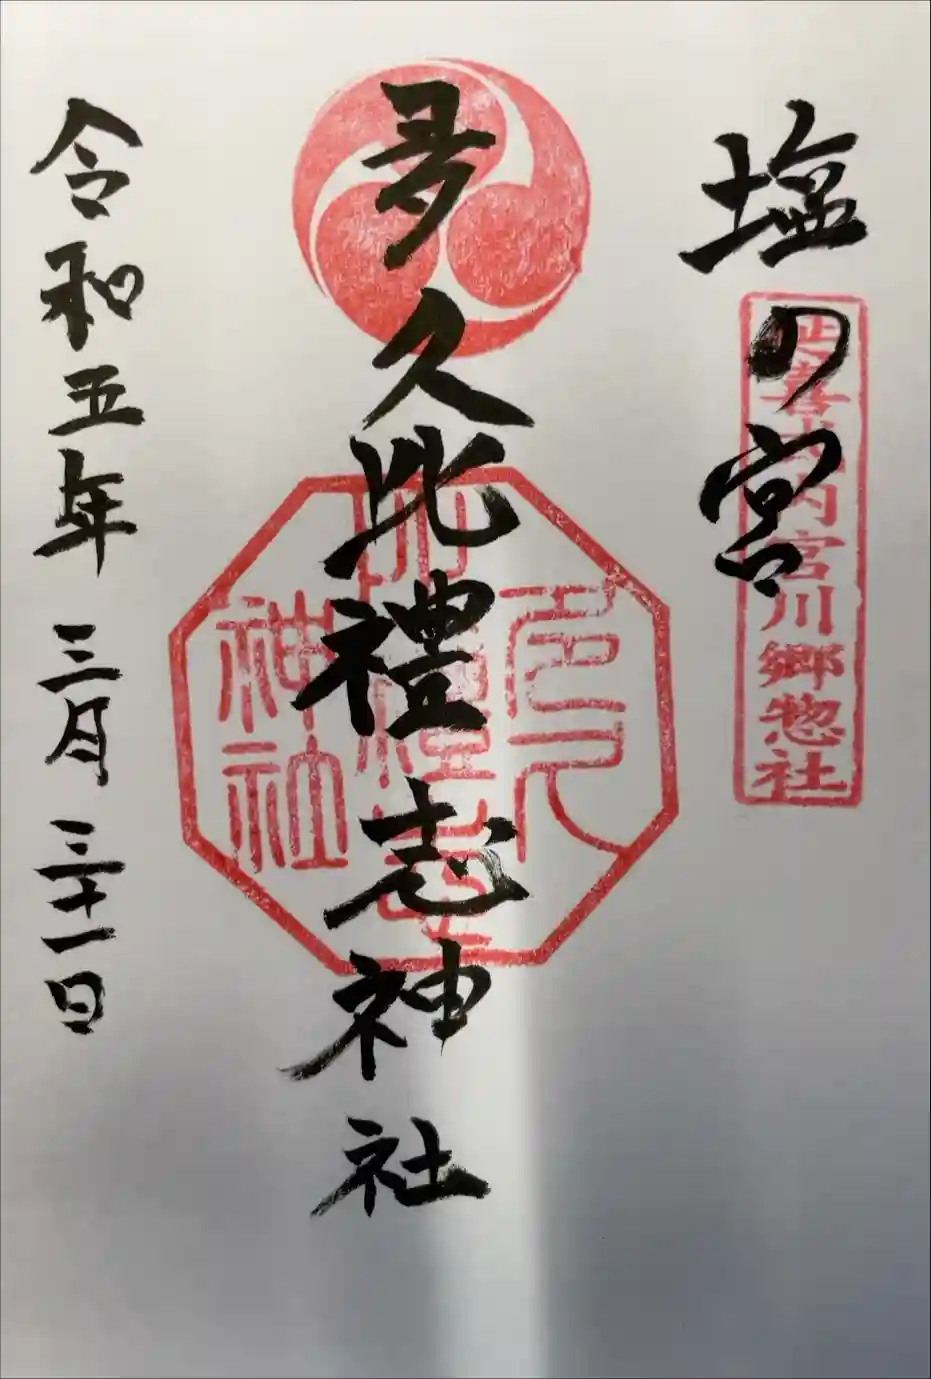 塩の宮
延喜式内宮川郷惣社
夛久比禮志神社
比禮志
神社
令和五年 三月 三十一日